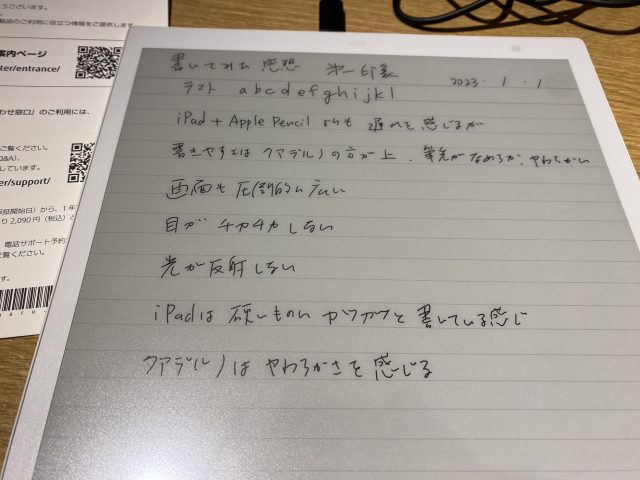 書いてみた感想 第一印象 2023.1.1
テスト abcdefghijkl
iPad + Apple Pencil よりも 遅れを感じるが
書きやすさは クアデルノの方が上。筆先がなめらか、やわらかい
画面も圧倒的に広い
目が チカチカしない
光が反射しない
iPadは 硬いものに ガツガツと 書いている感じ
クアデルノは やわらかさを 感じる
うございます。
製品のご利用に役立つ情報をご提供します。
案内ページ
ter/entrance/
わせ窓口」のご利用には、
ご覧ください。
Q&A)、
しています。
er/support/
保証開始日）から、1年
り 2,090円（税込）と
電話サポート予約
ご覧ください。
す。